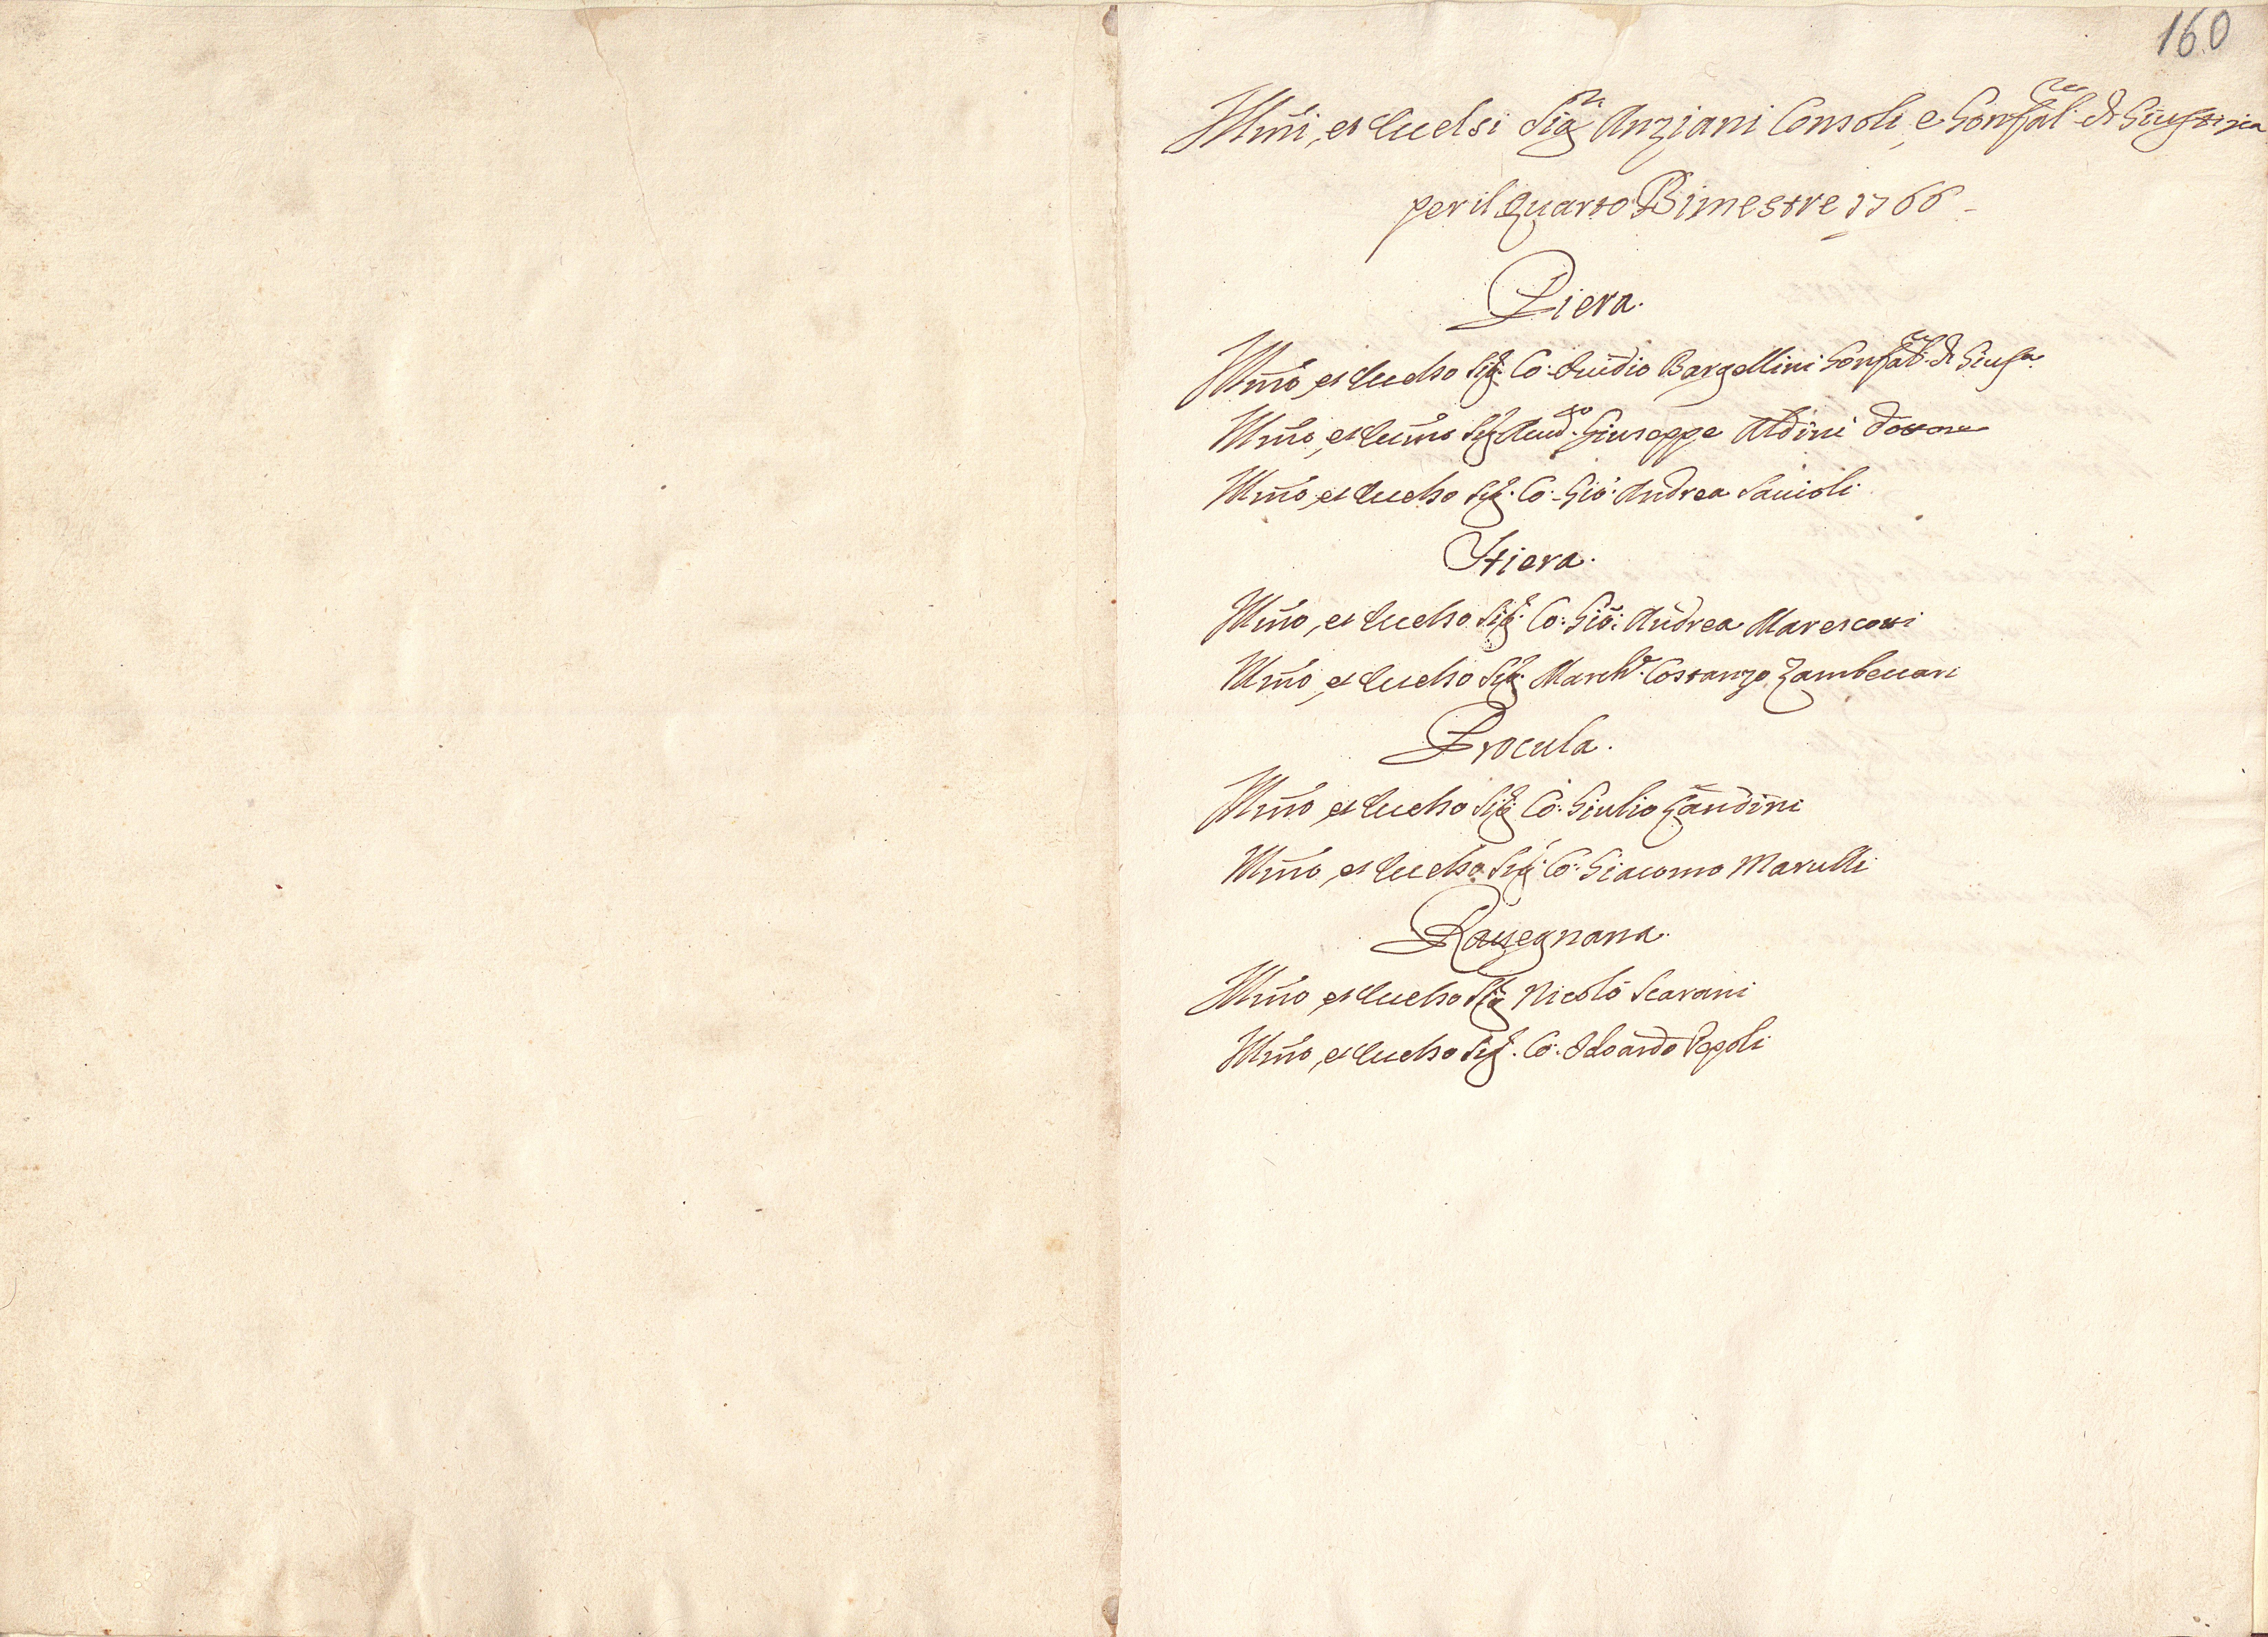 160
Illm̃i, et Eccelsi Sig.ri Anziani Consoli, e Gonfal.re di Giustizia
per il Quarto Bimestre 1766
Piera.
Illm̃o, et Eccelso Sig.r Co: Ovidio Bargellini Gonfal.re di Gius.a
Illm̃o, et Eccm̃o Sig.r Giuseppe Aldini Dottore
Illm̃o, et Eccelso Sig.r Co: Gio: Andrea Savioli
Stiera.
Illm̃o, et Eccelso Sig.r Co: Gio: Andrea Marescotti
Illm̃o, et Eccelso Sig.r March.e Costanzo Zambeccari
Procula.
Illm̃o, et Eccelso Sig.r Co: Giulio Gandini
Illm̃o, et Eccelso Sig.r Co: Giacomo Marulli
Ravegnana.
Illm̃o, et Eccelso Sig.r Nicolò Scarani
Illm̃o, et Eccelso Sig.r Co: Odoardo Pepoli